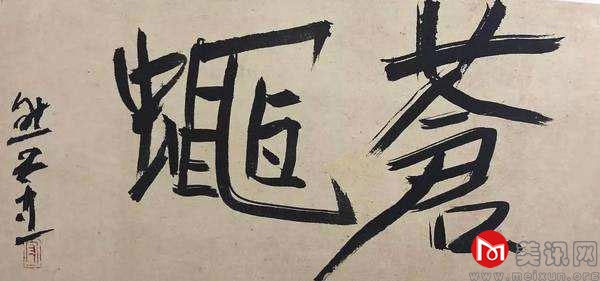 蒼蠅
美讯网
www.meixun.org